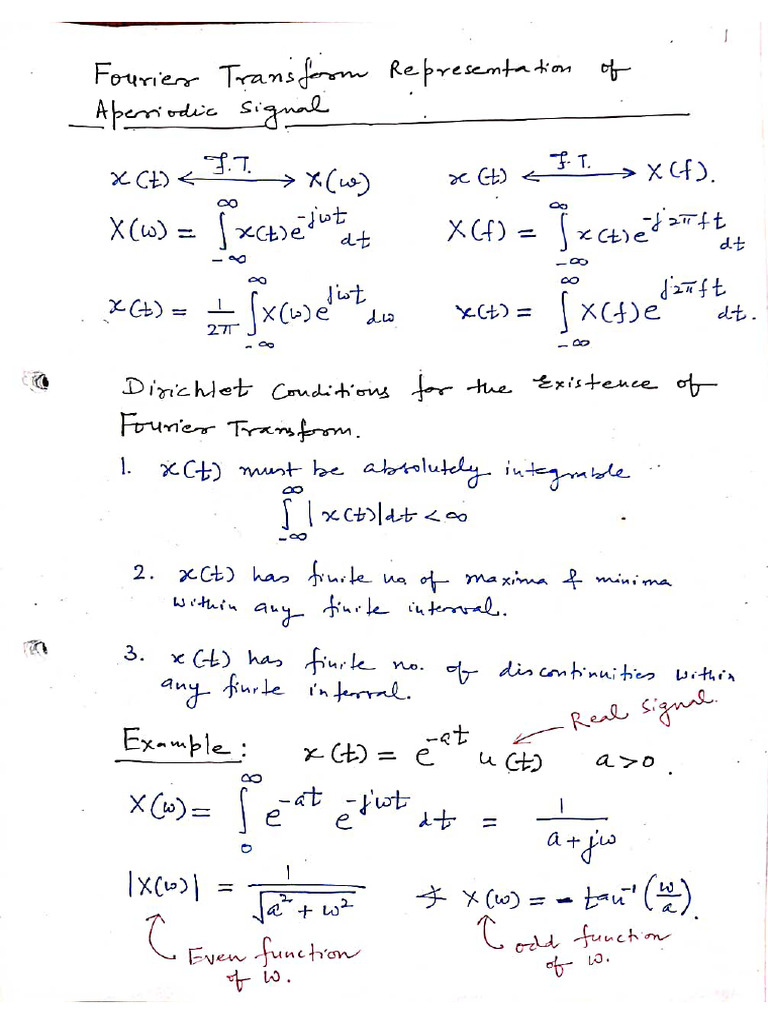 1
Fourier Transform Representation of
Aperiodic Signal
x(t) <—F.T.—> X(ω)    x(t) <—F.T.—> X(f).
X(ω) = ∫_{-∞}^{∞} x(t) e^{-jωt} dt    X(f) = ∫_{-∞}^{∞} x(t) e^{-j2πft} dt
x(t) = 1/2π ∫_{-∞}^{∞} X(ω) e^{jωt} dω    x(t) = ∫_{-∞}^{∞} X(f) e^{j2πft} dt.
Dirichlet Conditions for the Existence of
Fourier Transform.
1. x(t) must be absolutely integrable
∫_{-∞}^{∞} |x(t)| dt < ∞
2. x(t) has finite no of maxima & minima
within any finite interval.
3. x(t) has finite no. of discontinuities within
any finite interval.
Real Signal.
Example: x(t) = e^{-at} u(t)    a>0.
X(ω) = ∫_{0}^{∞} e^{-at} e^{-jωt} dt = 1/(a+jω)
|X(ω)| = 1/√(a²+ω²)    ∠X(ω) = - tan⁻¹(ω/a).
Even function    odd function
of ω.    of ω.